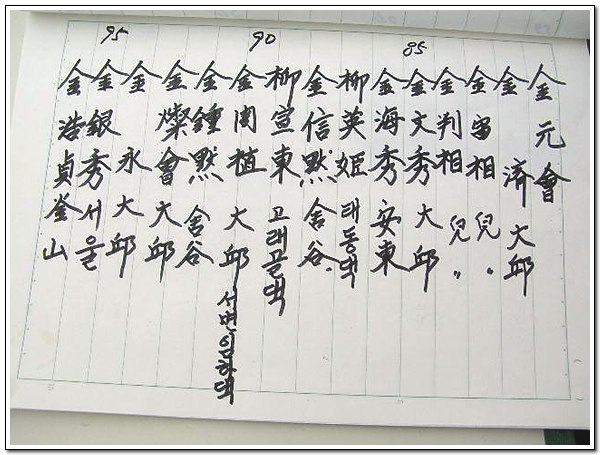 金元會
金濟 大邱
金宙相 兒 〃
金判相 兒 〃
85
金文秀 大邱
金海秀 安東
柳英姬 태동댁
金信默 舍谷
柳宣東 고래골댁
90
金閏植 大邱 서면임하댁
金鍾默 舍谷
金燦會 大邱
金永 大邱
95
金銀秀 서울
金浩貞 釜山